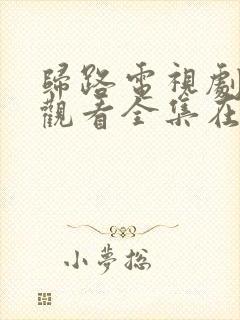 歸路電視劇
觀看全集在
小夢總